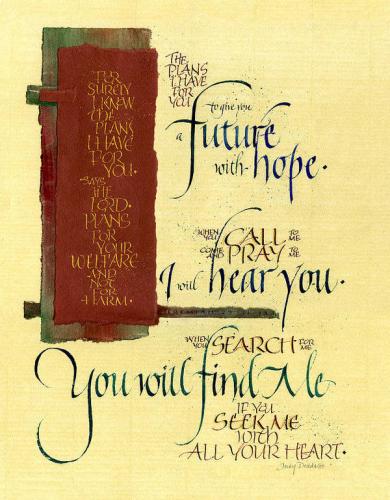 FOR
SURELY
I KNOW
THE
PLANS
I HAVE
FOR
YOU.
SAYS
THE
LORD.
PLANS
FOR
YOUR
WELFARE
AND
NOT
FOR
HARM.
THE
PLANS
I HAVE
FOR
YOU
to give you
a future
with hope.
WHEN YOU CALL TO ME
COME AND PRAY TO ME
I will hear you.
WHEN YOU SEARCH FOR ME
You will find Me
IF YOU
SEEK ME
with
ALL YOUR HEART.